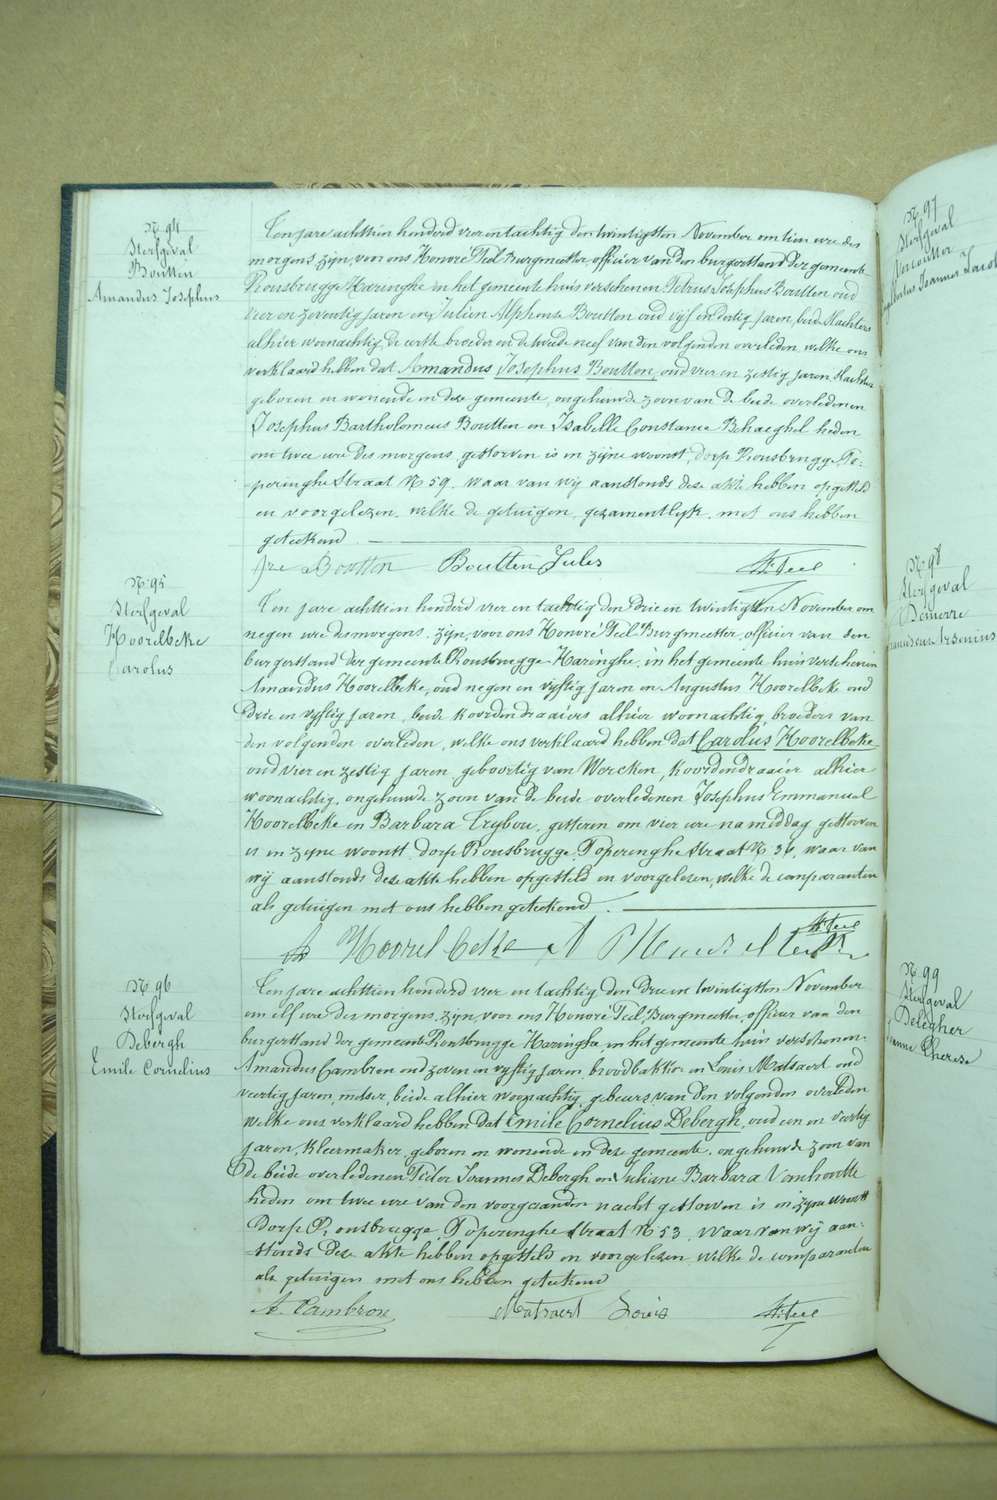 N. 94
Sterfgeval
Boutten
Amandus Josephus
Ten jare achttien honderd vier en tachtig den twintigsten November om tien ure des
morgens, zijn, voor ons Honoré Teel Burgmeester officier van den burgerstand der gemeente
Rousbrugge Haringhe in het gemeente huis verschenen Petrus Josephus Boutten oud
vier en zeventig jaren en Julien Alphonse Boutten oud vijf en dertig jaren, beide slachters
alhier woonachtig de eerste broeder en de tweede neef van den volgenden overleden, welke ons
verklaard hebben dat Amandus Josephus Boutten, oud vier en zestig jaren slachter
geboren en wonende in deze gemeente, ongehuwde zoon van de beide overledenen
Josephus Bartholomeus Boutten en Isabelle Constance Behaeghel heden
om twee ure des morgens gestorven is in zijne woonst, dorp Rousbrugge, Po-
peringhe Straat N 59. waar van wij aanstonds deze akte hebben opgesteld
en voorgelezen, welke de getuigen gezamentlijk met ons hebben
geteekend.
Boutten Boutten Jules H. Teel
N. 95
Sterfgeval
Hoorelbeke
Carolus
Ten jare achttien honderd vier en tachtig den drie en twintigsten November om
negen ure des morgens, zijn, voor ons Honoré Teel Burgmeester, officier van den
burgerstand der gemeente Rousbrugge-Haringhe, in het gemeente huis verschenen
Amandus Hoorelbeke, oud negen en vijftig jaren en Augustus Hoorelbeke oud
drie en vijftig jaren, beide koordendraaiers alhier woonachtig, broeders van
den volgenden overleden, welke ons verklaard hebben dat Carolus Hoorelbeke
oud vier en zestig jaren, geboortig van Wercken, koordendraaier alhier
woonachtig, ongehuwde zoon van de beide overledenen Josephus Emmanuel
Hoorelbeke en Barbara Trybou, gisteren om vier ure namiddag gestorven
is in zijne woonst, dorp Rousbrugge, Poperinghe Straat N 34, waar van
wij aanstonds deze akte hebben opgesteld en voorgelezen, welke de comparanten
als getuigen met ons hebben geteekend.
H. Teel
Hoorelbeke A
N. 96
Sterfgeval
Debergh
Emile Cornelius
Ten jare achttien honderd vier en tachtig den drie en twintigsten November
om elf ure des morgens, zijn, voor ons Honoré Teel, Burgmeester, officier van den
burgerstand der gemeente Rousbrugge Haringhe in het gemeente huis verschenen
Amandus Cambron oud zeven en vijftig jaren, broodbakker en Louis Matsaert oud
veertig jaren, metser, beide alhier woonachtig, gebeurs van den volgenden overleden
welke ons verklaard hebben dat Emile Cornelius Debergh, oud een en veertig
jaren, kleermaker, geboren en wonende in deze gemeente, ongehuwde zoon van
de beide overledenen Pieter Joannes Debergh en Juliane Barbara Vanhoutte
heden om twee ure van den voorgaanden nacht gestorven is in zijne woonst
Dorp Rousbrugge, Poperinghe straat N 53. Waar van wij aan-
stonds deze akte hebben opgesteld en voorgelezen welke de comparanten
als getuigen met ons hebben geteekend
A. Cambron Matsaert Louis H. Teel
N. 97
Sterfgeval
Vercoutter
N. 98
Sterfgeval
Demerre
Arsenius
N. 99
Sterfgeval
Delegher
Therese